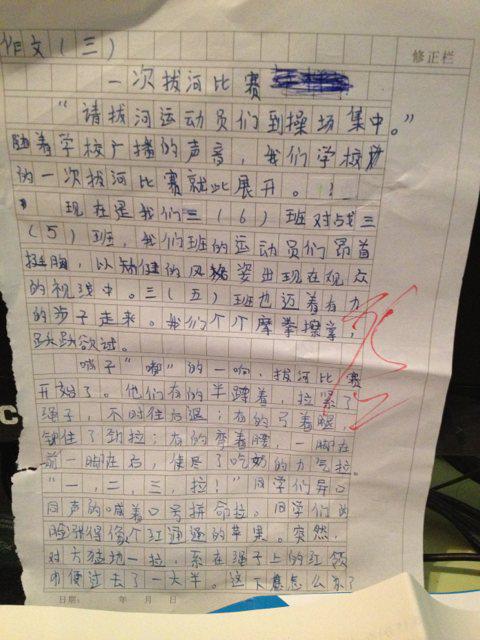 作文（三）
修正栏
一次拔河比赛
“请拔河运动员们到操场集中。”
随着学校广播的声音，我们学校
的一次拔河比赛就此展开。
现在是我们三（6）班对战三
（5）班，我们班的运动员们昂首
挺胸，以矫健的风姿出现在观众
的视线中。三（五）班也迈着有力
的步子走来。我们个个摩拳擦掌，
跃跃欲试。
哨子“嘟”的一响，拔河比赛
开始了。他们有的半蹲着，拉紧了
绳子，不时往后退；有的弓着腿，
住了劲拉；有的弯着腰，一脚在
前一脚在后，使尽了吃奶的力气拉。
“一，二，三，拉！”同学们异口
同声的喊着口号拼命拉。同学们的
脸张得像个红通通的苹果。突然，
对方猛地一拉，系在绳子上的红领
巾便过去了一大半。这下意怎么办了
日期： 年 月 日